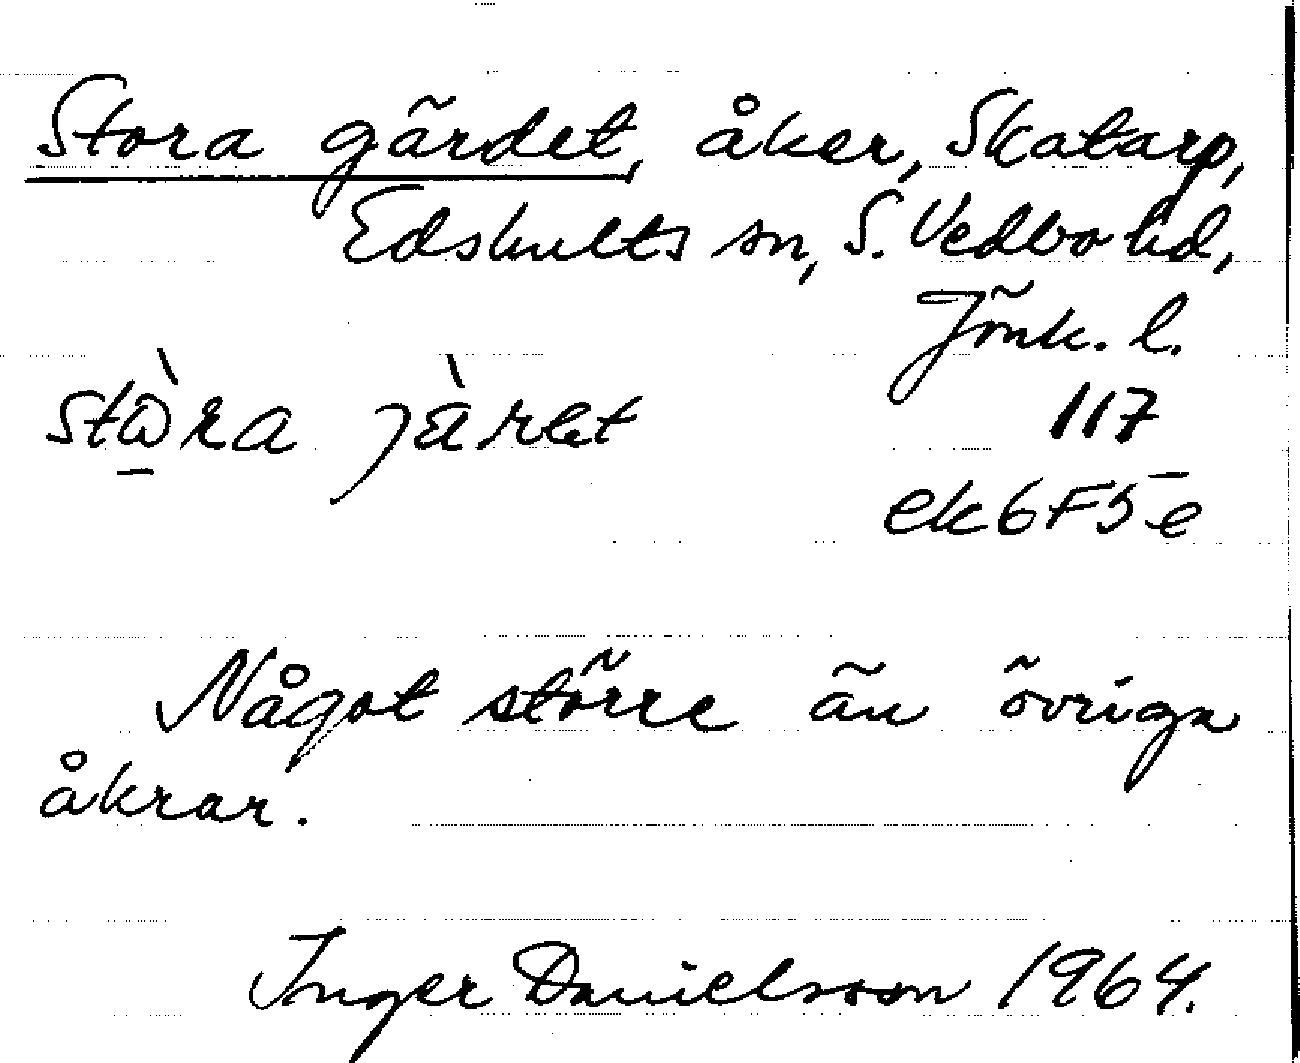 Stora gärdet, åker, Skatarp,
Edshults sn, S. Vedbo hd,
Jönk. l.
117
stὼ̠ra jà̈ret
ek 6F5e
Något större än övriga
åkrar.
Inger Danielsson 1964.